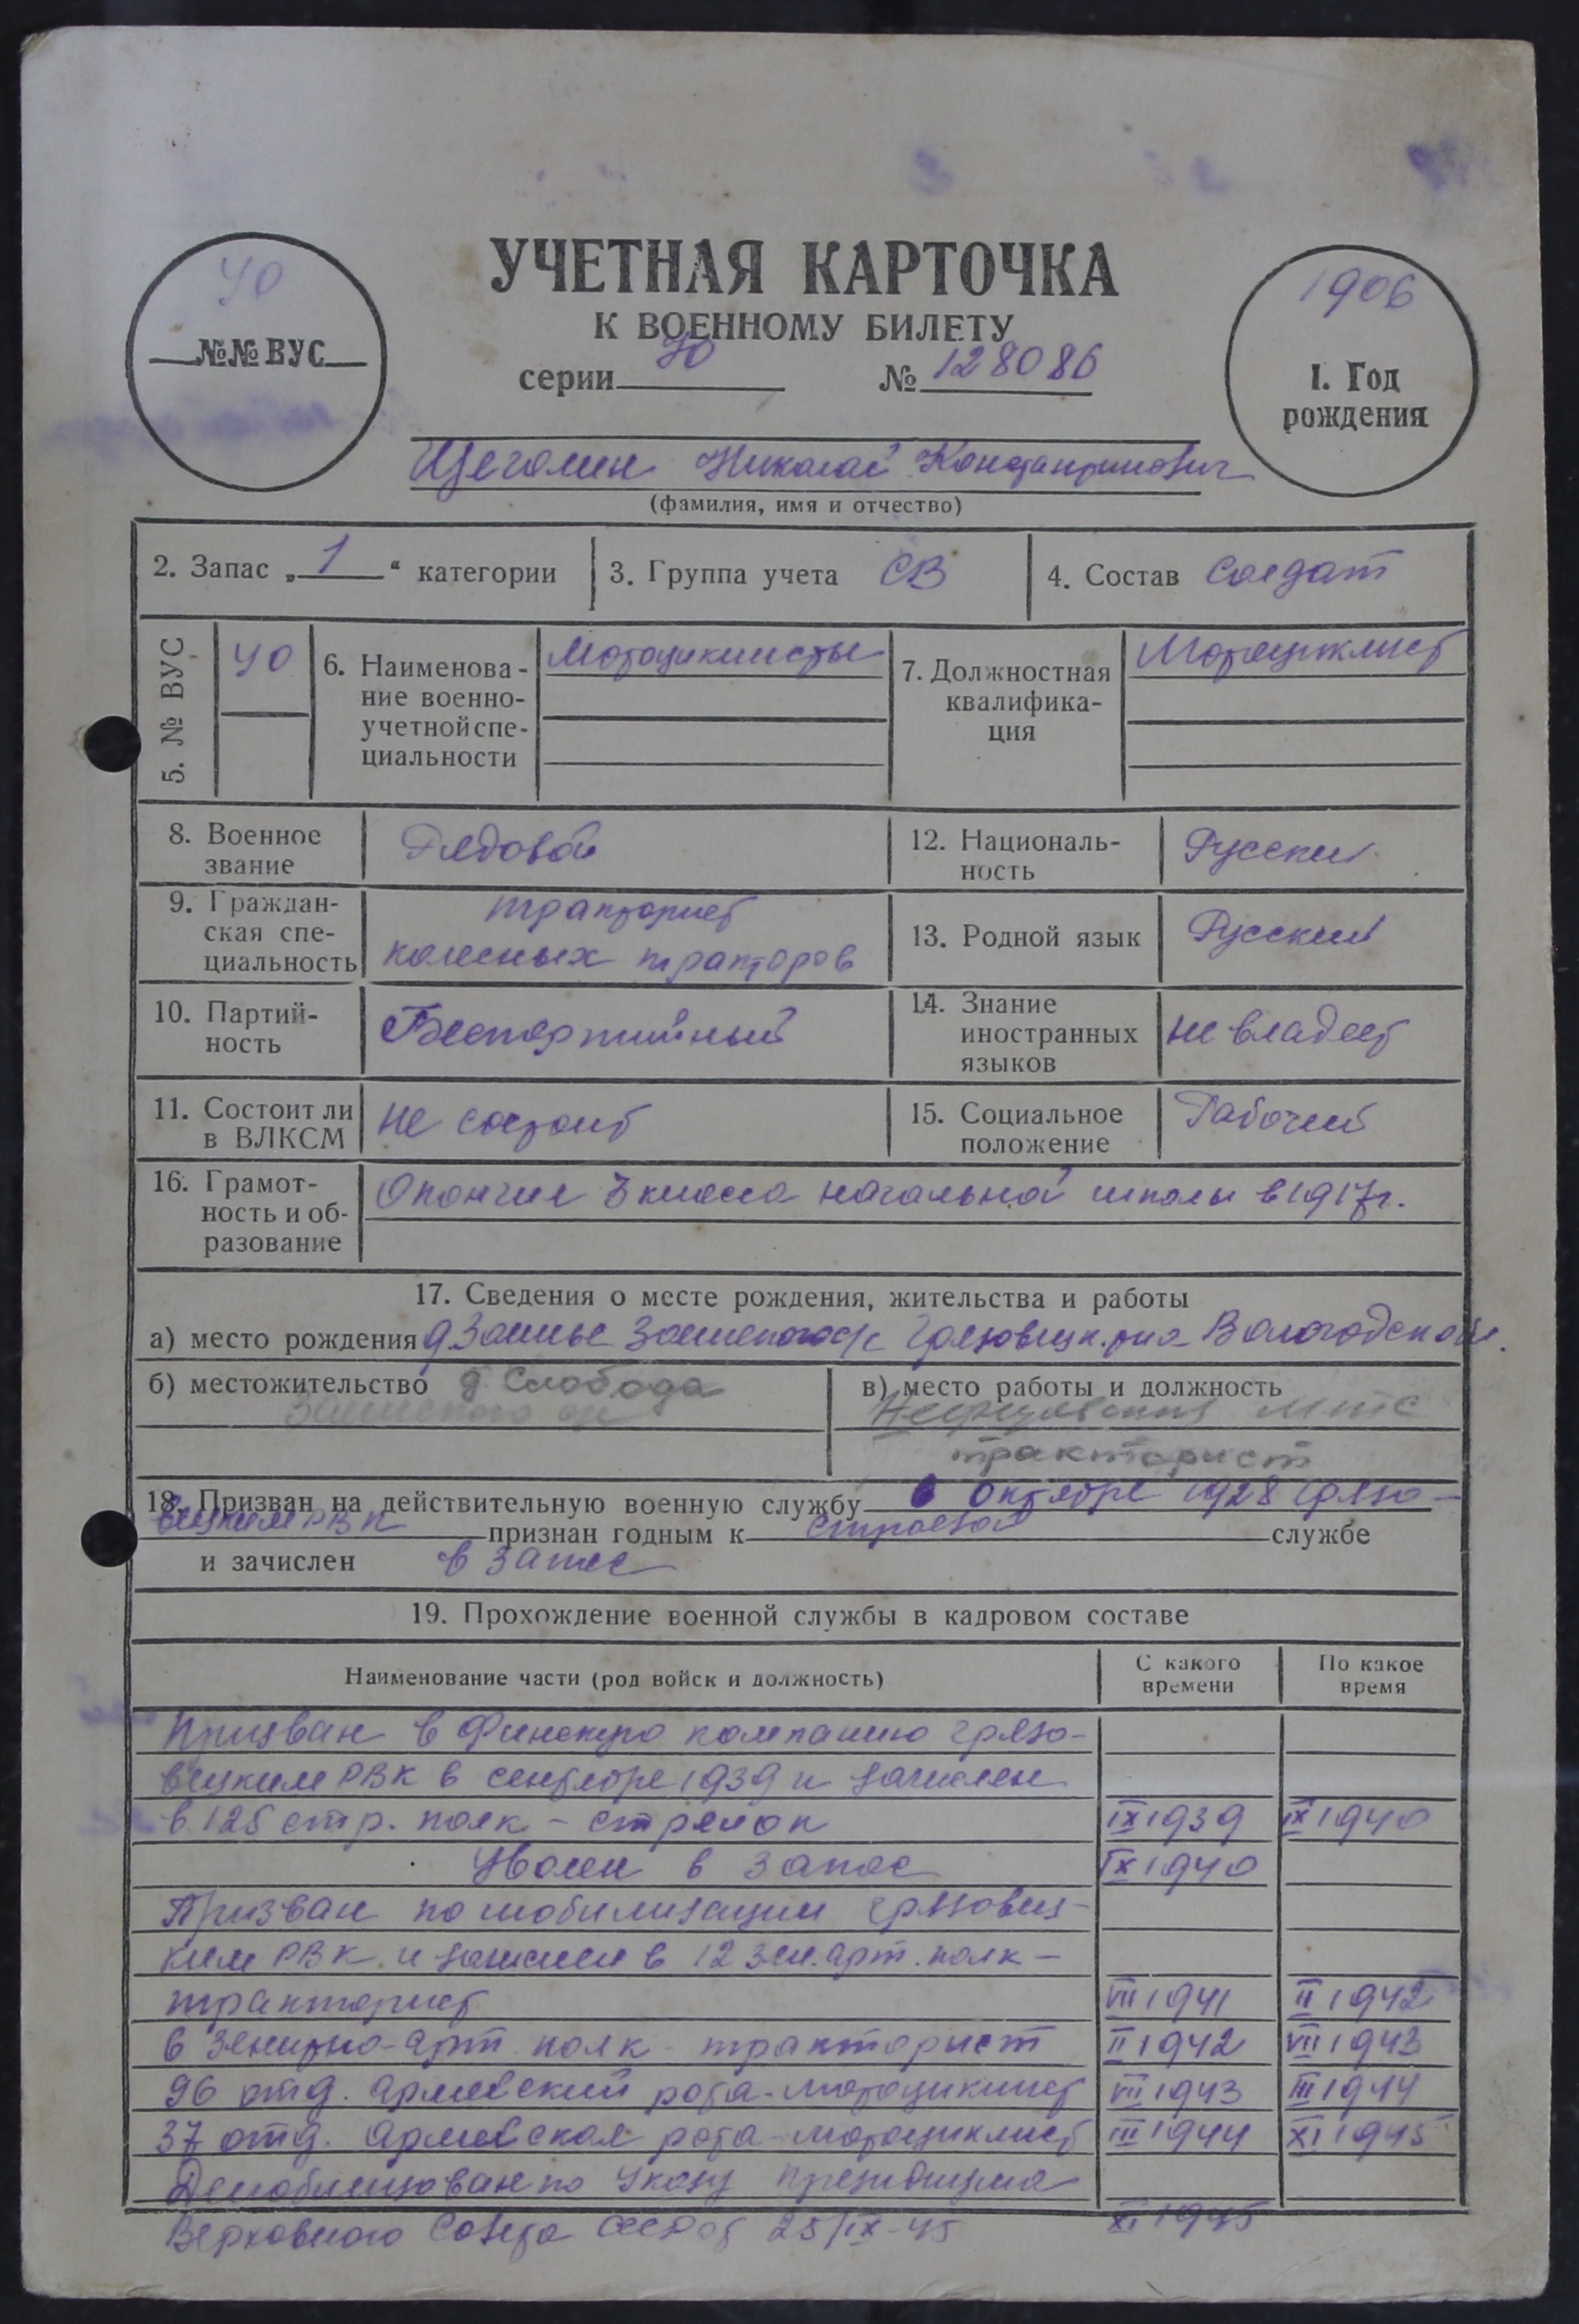 УЧЕТНАЯ КАРТОЧКА
К ВОЕННОМУ БИЛЕТУ
серии № 128086
№№ ВУС
1906
1. Год
рождения
Щеголин Николай Константинович
(фамилия, имя и отчество)
2. Запас „ 1 “ категории
3. Группа учета СВ
4. Состав солдат
5. № ВУС
40
6. Наименова-
ние военно-
учетной спе-
циальности
Мотоциклисты
7. Должностная
квалифика-
ция
Мотоциклист
8. Военное
звание
Рядовой
12. Националь-
ность
Русский
9. Граждан-
ская спе-
циальность
тракторист
колесных тракторов
13. Родной язык
Русский
10. Партий-
ность
Беспартийный
14. Знание
иностранных
языков
не владеет
11. Состоит ли
в ВЛКСМ
не состоит
15. Социальное
положение
Рабочий
16. Грамот-
ность и об-
разование
Окончил 3 класса начальной школы в 1917 г.
17. Сведения о месте рождения, жительства и работы
а) место рождения Грязовецк. р-на Вологодской
б) местожительство д Слобода
в) место работы и должность
МТС
тракторист
18. Призван на действительную военную службу в октябре 1928 Грязо-
вецким РВК признан годным к строевой службе
и зачислен в запас
19. Прохождение военной службы в кадровом составе
Наименование части (род войск и должность)
С какого
времени
По какое
время
Призван в Финскую компанию Грязо-
вецким РВК в сентябре 1939 и зачислен
в 125 стр. полк - стрелок IX 1939 IX 1940
Уволен в запас IX 1940
Призван по мобилизации Грязовец-
ким РВК и зачислен в 12 зен. арт. полк -
тракторист VII 1941 II 1942
в зенитно-арт. полк - тракторист II 1942 VII 1943
96 отд. армейский рота - мотоциклист VII 1943 III 1944
37 отд. армейская рота - мотоциклист III 1944 XI 1945
Демобилизован по Указу президиума
Верховного Совета СССР от 25/IX-45 XI 1945